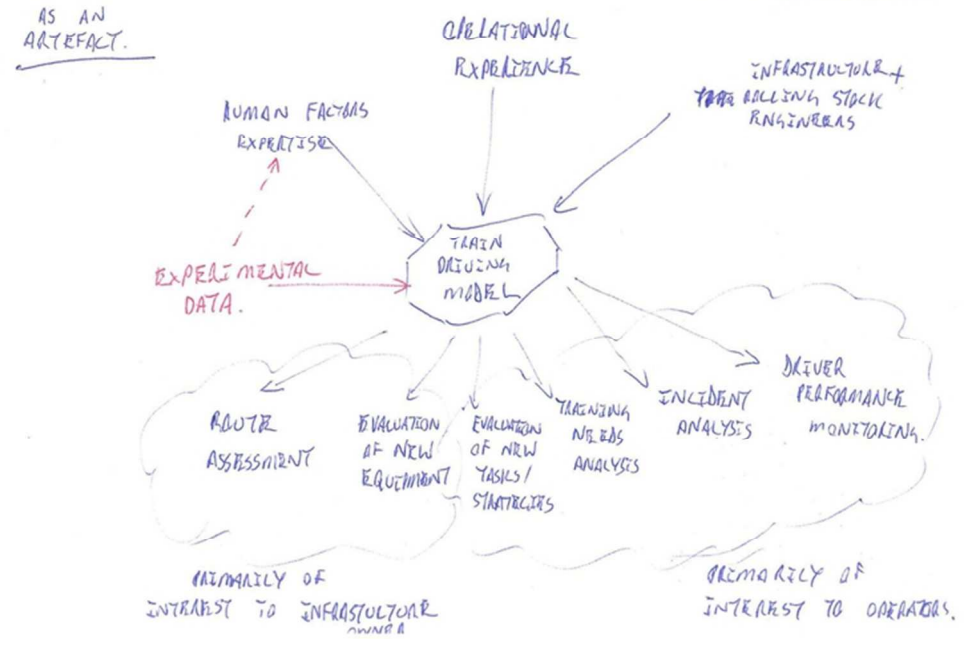 AS AN
ARTEFACT.
OPERATIONNAL
EXPERIENCE
INFRASTRUCTURE +
ROLLING STOCK
ENGINEERS
HUMAN FACTORS
EXPERTISE
TRAIN
DRIVING
MODEL
EXPERIMENTAL
DATA.
ROUTE
ASSESSMENT
EVALUATION
OF NEW
EQUIPMENT
EVALUATION
OF NEW
TASKS/
STRATEGIES
TRAINING
NEEDS
ANALYSIS
INCIDENT
ANALYSIS
DRIVER
PERFORMANCE
MONITORING.
PRIMARILY OF
INTEREST TO INFRASTUCTURE
OWNER
PRIMARILY OF
INTEREST TO OPERATORS.